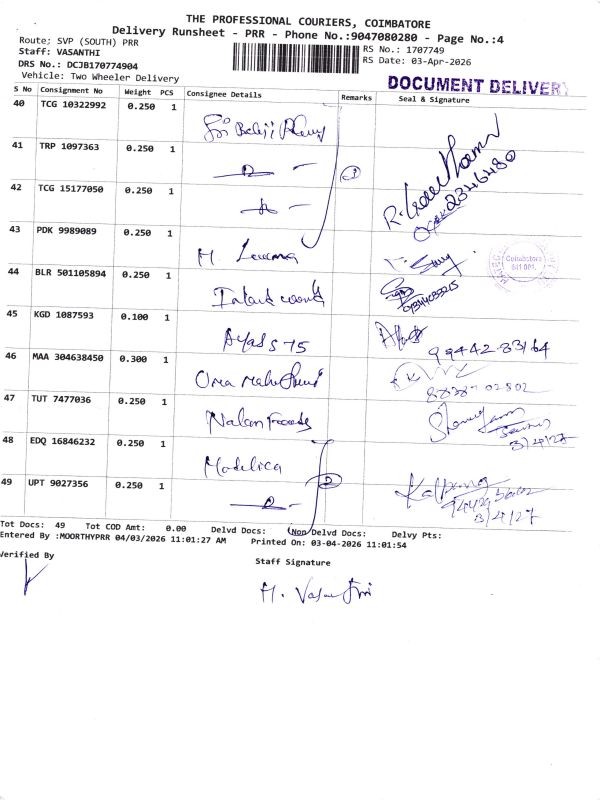 THE PROFESSIONAL COURIERS, COIMBATORE
Delivery Runsheet - PRR - Phone No.:9047080280 - Page No.:4
Route: SVP (SOUTH) PRR
RS No.: 1707749
Staff: VASANTHI
RS Date: 03-Apr-2026
DRS No.: DCJB170774904
Vehicle: Two Wheeler Delivery
DOCUMENT DELIVERY
S No Consignment No Weight PCS Consignee Details Remarks Seal & Signature
40 TCG 10322992 0.250 1
41 TRP 1097363 0.250 1
1
42 TCG 15177050 0.250 1
2346480
43 PDK 9989089 0.250 1
Coimbatore
641 001
44 BLR 501105894 0.250 1
45 KGD 1087593 0.100 1 Ayass 75
99442 83164
46 MAA 304638450 0.300 1
02802
47 TUT 7477036 0.250 1 Nalan Foods
3/4/27
48 EDQ 16846232 0.250 1
2
49 UPT 9027356 0.250 1 Kalpana
3/4/27
Tot Docs: 49 Tot COD Amt: 0.00 Delvd Docs: Non Delvd Docs: Delvy Pts:
Entered By :MOORTHYPRR 04/03/2026 11:01:27 AM Printed On: 03-04-2026 11:01:54
Verified By
Staff Signature